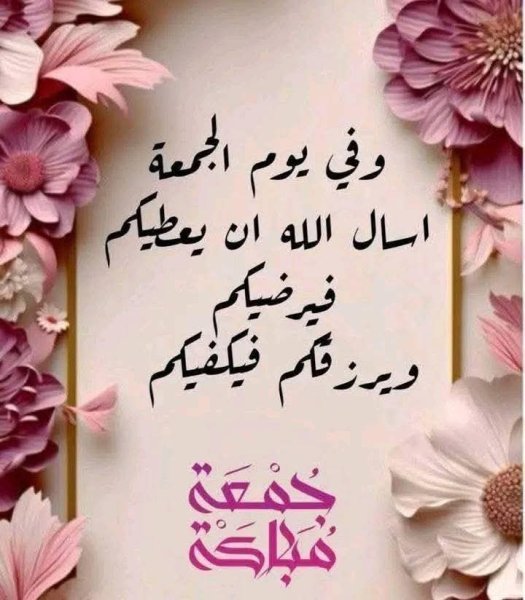 وفي يوم الجمعة
اسال الله ان يعطيكم
فيرضيكم
ويرزقكم فيكفيكم
جُمْعَة
مُبَارَكَة